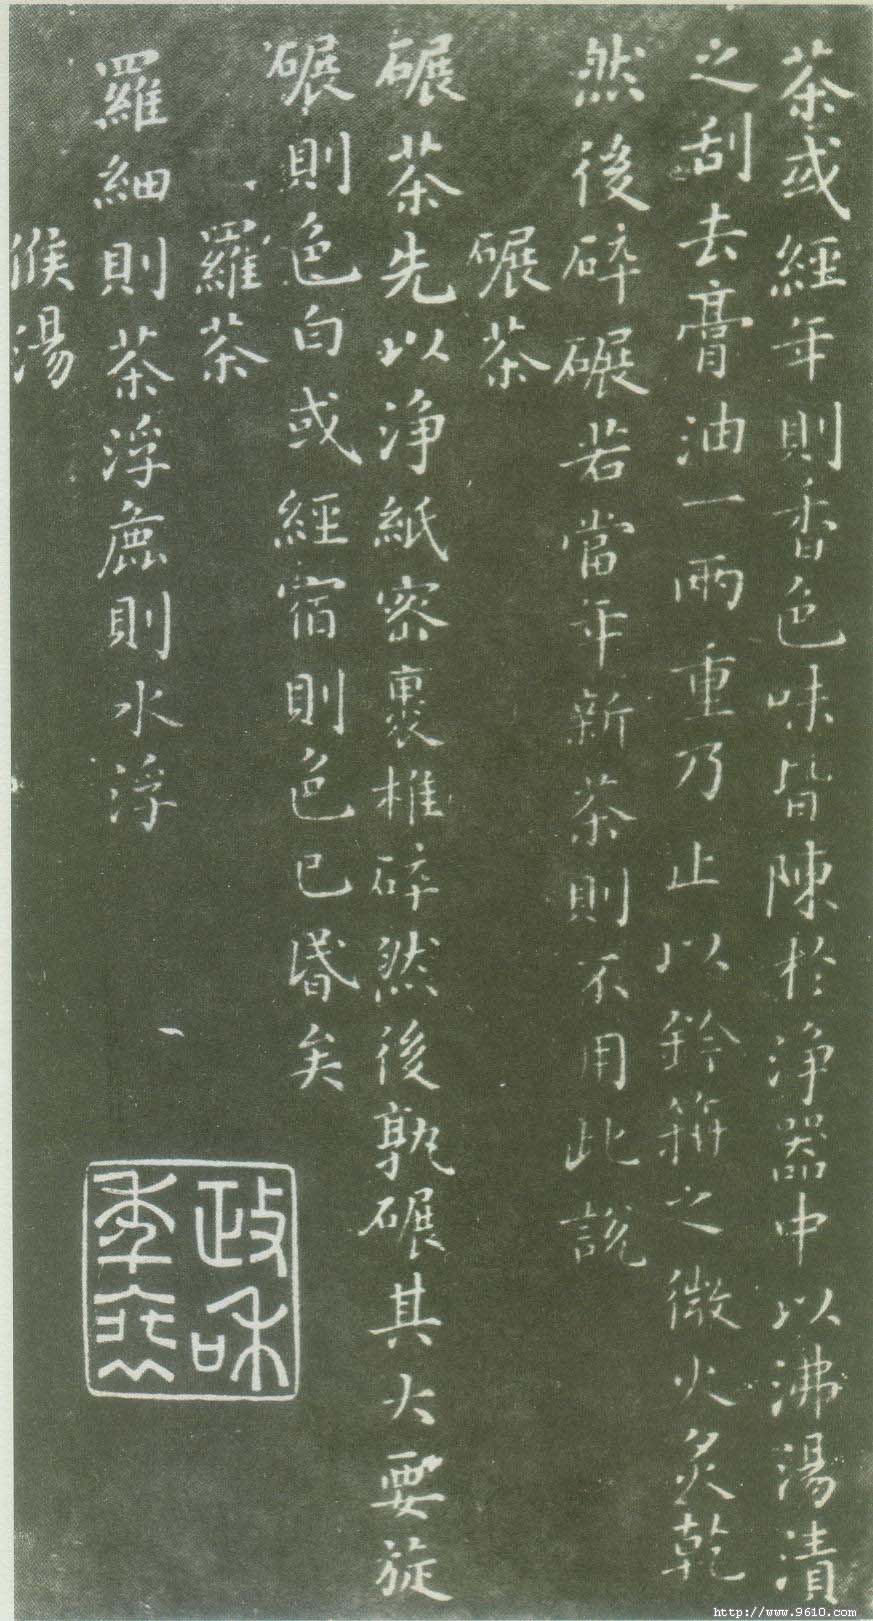 茶或經年則香色味皆陳於淨器中以沸湯漬
之刮去膏油一兩重乃止以鈐箝之微火炙乾
然後碎碾若當年新茶則不用此說
碾茶
碾茶先以淨紙密裹椎碎然後孰碾其大要旋
碾則色白或經宿則色已昏矣
羅茶
羅細則茶浮麁則水浮
候湯
政和
http://www.9610.com